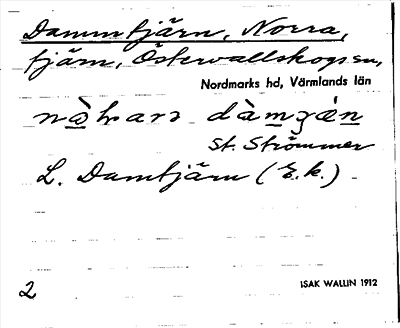 Dammtjärn, Norra,
tjärn, Östervallskogs sn,
Nordmarks hd, Värmlands län
St. Strömmer
L. Damtjärn (E.k.).
2
ISAK WALLIN 1912